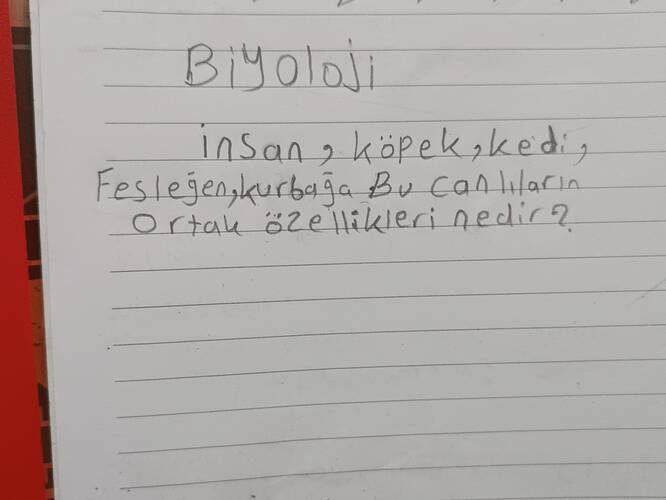 Biyoloji
insan, köpek, kedi,
Fesleğen, kurbağa Bu canlıların
Ortak özellikleri nedir?